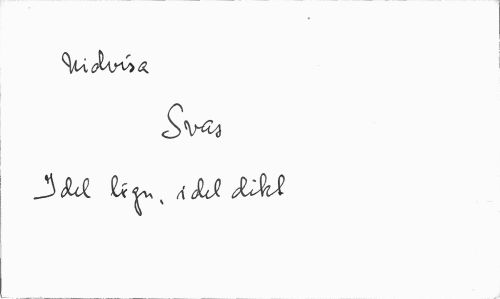 Nidvisa
Svar
Idel lögn, idel dikt